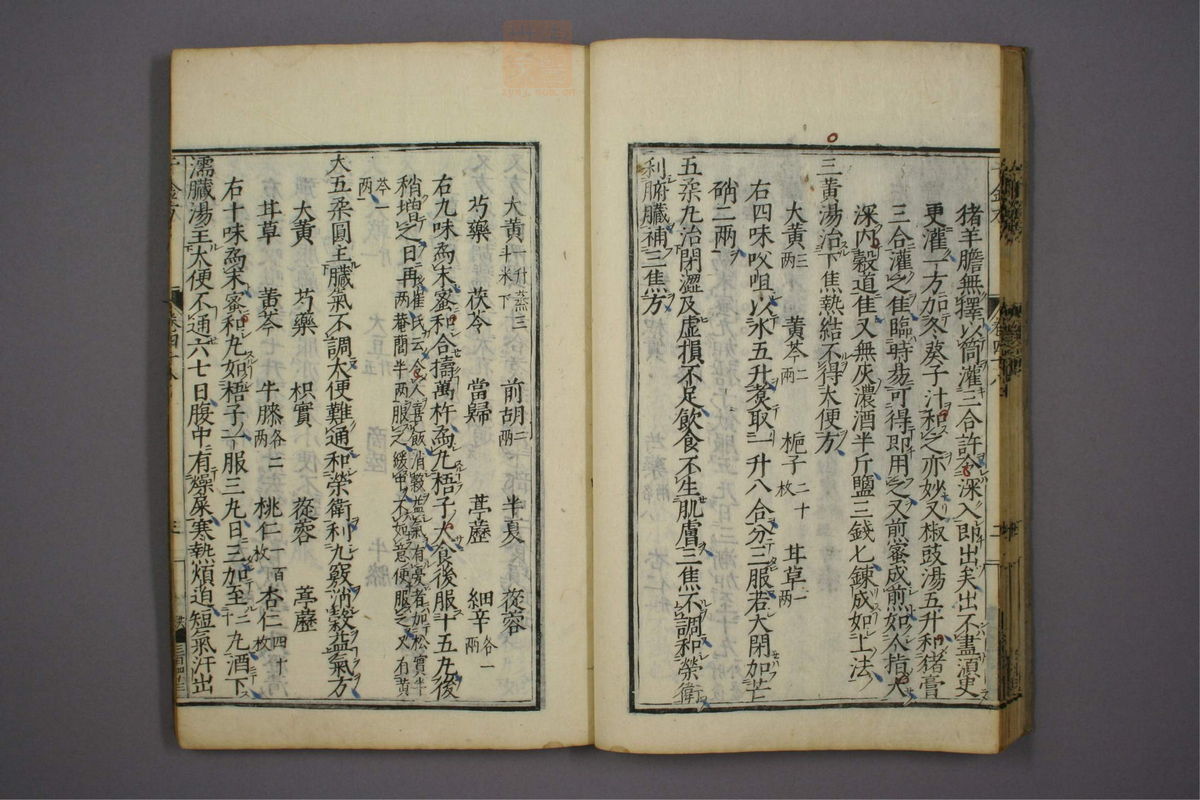 猪羊膽無擇以筒灌三合許令深入即出矣出不盡須臾
更灌一方加冬葵子汁和之亦妙又椒豉湯五升和猪膏
三合灌之佳臨時易可得即用之又煎蜜成煎如人指大
深内穀道佳又無灰濃酒半斤鹽三錢匕錬成如上法
三黄湯治下焦熱結不得大便方
大黄三兩 黄芩二兩 梔子二十枚 甘草一兩
右四味㕮咀以水五升煑取一升八合分三服若大閉加芒
硝二兩
五柔丸治閉澀及虛損不足飲食不生肌膚三焦不調和榮衛
利腑臟補三焦方
大黄一升蒸三斗米下 前胡二兩 半夏 蓯蓉
芍藥 茯苓 當歸 葶藶 細辛各一兩
右九味爲末蜜和合擣萬杵爲丸梧子大食後服十五丸後
稍增之日再 崔氏云令人喜飯消穀益氣有憂者加松實半兩菴䕡半兩服之緩中不如意便服之又有黄芩一兩
大五柔圓主臟氣不調大便難通和榮衛利九竅消穀益氣方
大黄 芍藥 枳實 蓯蓉 葶藶
甘草 黄芩 牛膝各二兩 桃仁一百枚 杏仁四十枚
右十味爲末蜜和丸如梧子一服三丸日三加至二十丸酒下
濡臟湯主大便不通六七日腹中有燥屎寒熱煩迫短氣汗出